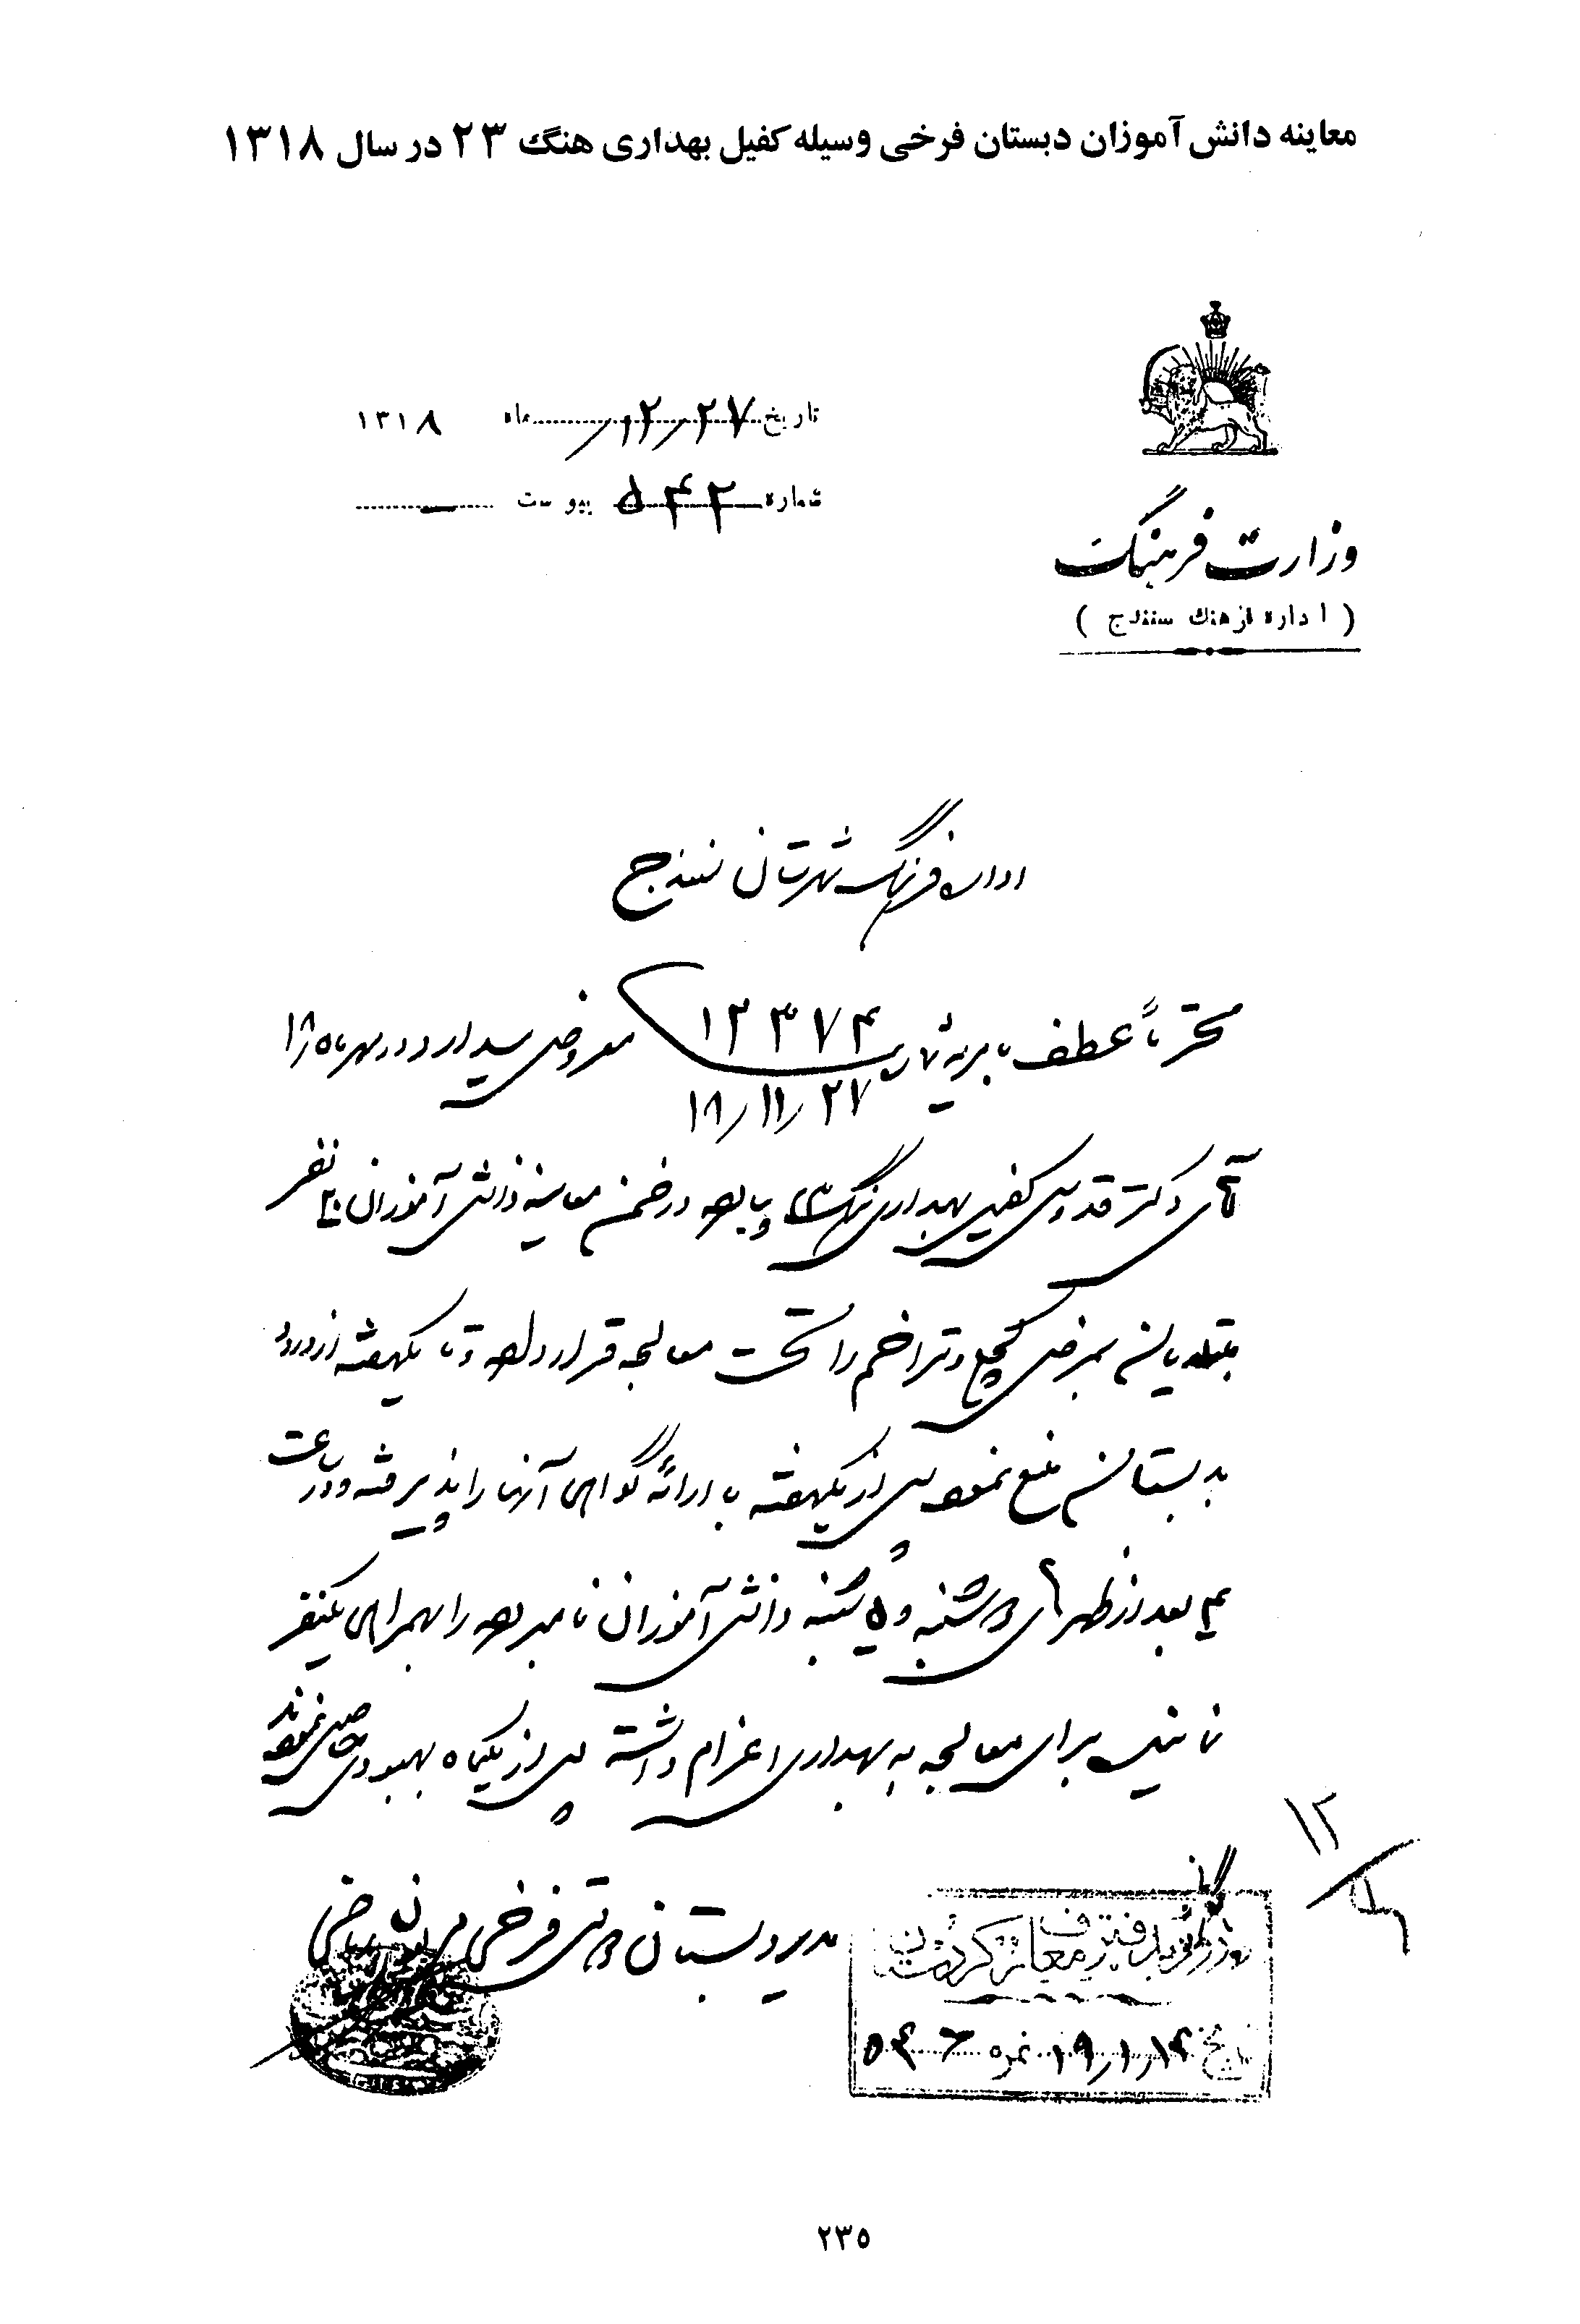 معاینه دانش آموزان دبستان فرخی وسیله کفیل بهداری هنگ ۲۳ در سال ۱۳۱۸
تاریخ ۲۷/۱۲/ ماه ۱۳۱۸
شماره ۵۴۲ پیوست —
وزارت فرهنگ
(اداره فرهنگ سنندج)
اداره فرهنگ شهرستان سنندج
محترماً عطف بامریه شماره ۱۲۳۷۴ معروض میدارد در مهرماه ۱۸
۱۸/۱۱/۲۷
آقای دکتر قدوسی کفیل بهداری هنگ ۲۳ پیاده در ضمن معاینه دانش آموزان ۲۰ نفر
مبتلایان بمرض کچلی و تراخم را تحت معالجه قرار داده و تا یکهفته از ورود
بدبستان منع نموده پس از یکهفته با ارائه گواهی آنها را پذیرفته و در ساعت
۴ بعد از ظهرهای ۳ شنبه و ۵ شنبه دانش آموزان نامبرده را بهمراهی یکنفر
برای معالجه به بهداری اعزام داشته پس از یکماه بهبودی حاصل نمودند
مدیر دبستان دولتی فرخی
ورود بدفتر معارف کردستان
تاریخ ۱۹/۱/۱۴ نمره ۵۴۶
۱۲
۲۳۵